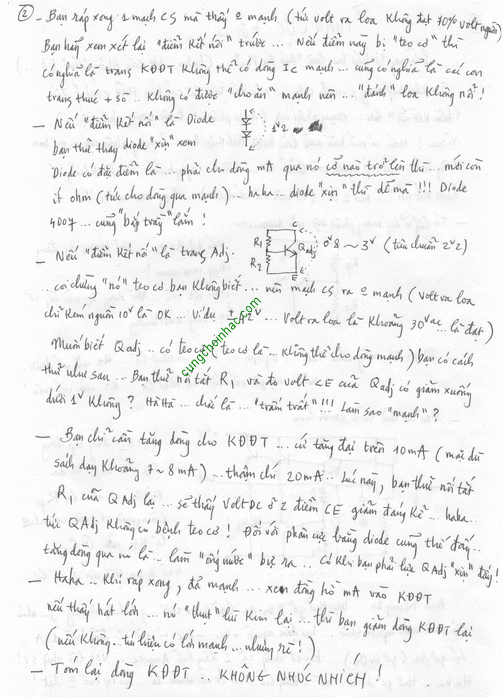 ② - Bạn ráp xong 1 mạch CS mà thấy 0 mạnh (tức volt ra loa không đạt 70% volt nguồn)
Bạn hãy xem xét lại "điểm kết nối" trước... Nếu điểm này bị "teo cơ" thì
có nghĩa là trang KĐĐT không thể có dòng Ic mạnh... cũng có nghĩa là các con
trang thúc + sò.. không có được "cho ăn" mạnh nên... "đánh" loa không nổi!
- Nếu "điểm kết nối" là Diode
bạn thử thay diode "xịn" xem
1V2
Diode có đặc điểm là... phải cho dòng mA qua nó cỡ nào trở lên thì... mới còn
ít ohm (tức cho dòng qua mạnh)... haha... diode "xịn" thì dễ mà!!! Diode
4007... cũng "bắp trấy" lắm!
- Nếu "điểm kết nối" là trang Adj.
R1
R2
C
Qadj
E
0V8 ~ 3V (tiêu chuẩn 2V2)
... coi chừng "nó" teo cơ bạn không biết... nên mạch CS ra 0 mạnh (Volt ra loa
chỉ kém nguồn 10V là OK... Ví dụ ± 42V... Volt ra loa là khoảng 30Vac... là đạt)
Muốn biết Qadj.. có teo cơ (teo cơ là... không thể cho dòng mạnh) bạn có cách
thử như sau... Bạn thử nối tắt R1 và đo volt CE của Qadj có giảm xuống
dưới 1V không? Hà Hà... chắc là... "trầm trật"!!! Làm sao "mạnh"?
- Bạn chỉ cần tăng dòng cho KĐĐT... cứ tăng đại trên 10mA (mặc dù
sách dạy khoảng 7 ~ 8mA)... thậm chí 20mA.. Lúc này, bạn thử nối tắt
R1 của QAdj lại... sẽ thấy Volt DC ở 2 điểm CE giảm đáng kể... haka..
tức QAdj không có bệnh teo cơ! Đối với phân cực bằng diode cũng thế đấy..
tăng dòng qua nó là... làm "ống nước" bự ra.. Có khi bạn phải lựa QAdj "xịn" đấy!
- Haha.. Khi ráp xong, đã mạnh... xem đồng hồ mA vào KĐĐT
nếu thấy hát lớn... nó "thụt" lùi kim lại... thì bạn giảm dòng KĐĐT lại
(nếu không.. tín hiệu có lớn mạnh... nhưng rè!)
- Tóm lại dòng KĐĐT... KHÔNG NHÚC NHÍCH!
cungchoinhac.com